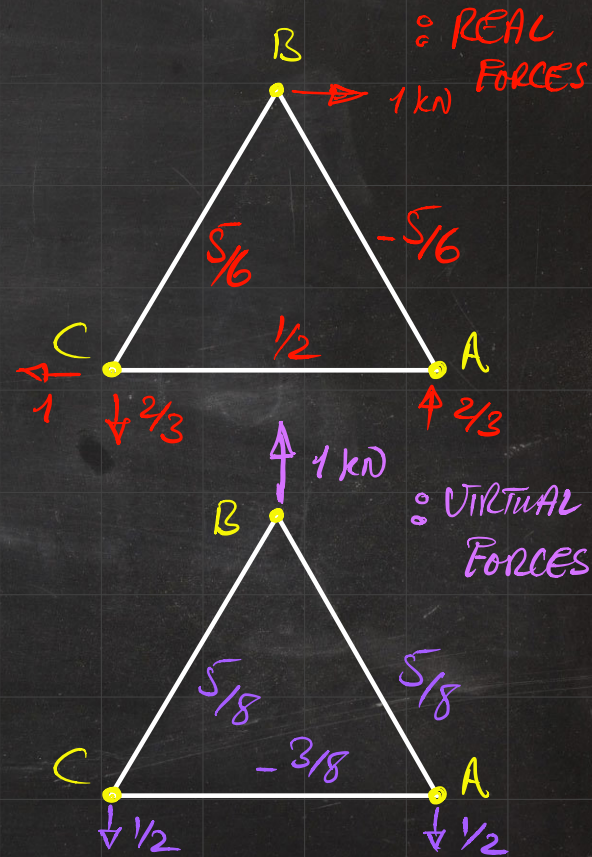 : REAL
FORCES
B
1 kN
5/6
-5/6
C
1/2
A
1
2/3
2/3
1 kN
: VIRTUAL
FORCES
B
5/8
5/8
C
-3/8
A
1/2
1/2